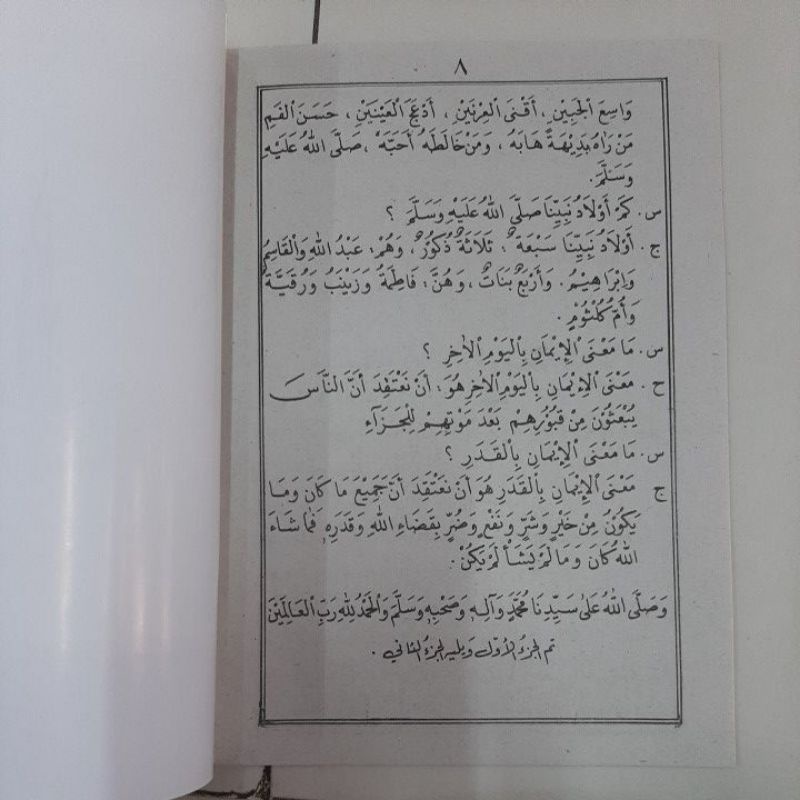 ٨
وَاسِعَ الْجَبِيْنِ، أَقْنَى الْعِرْنَيْنِ، أَدْعَجَ الْعَيْنَيْنِ، حَسَنَ الْفَمِ
مَنْ رَاٰهُ بَدِيْهَةً هَابَهُ، وَمَنْ خَالَطَهُ أَحَبَّهُ، صَلَّى اللهُ عَلَيْهِ
وَسَلَّمَ.
س. كَمْ أَوْلَادُ نَبِيِّنَا صَلَّى اللهُ عَلَيْهِ وَسَلَّمَ ؟
ج. أَوْلَادُ نَبِيِّنَا سَبْعَةٌ: ثَلَاثَةٌ ذُكُوْرٌ، وَهُمْ: عَبْدُ اللهِ وَالْقَاسِمُ
وَإِبْرَاهِيْمُ. وَأَرْبَعُ بَنَاتٌ، وَهُنَّ: فَاطِمَةُ وَزَيْنَبُ وَرُقَيَّةُ
وَأُمُّ كُلْثُوْمٍ.
س. مَا مَعْنَى الْإِيْمَانِ بِالْيَوْمِ الْاٰخِرِ ؟
ح. مَعْنَى الْإِيْمَانِ بِالْيَوْمِ الْاٰخِرِ هُوَ: أَنْ نَعْتَقِدَ أَنَّ النَّاسَ
يُبْعَثُوْنَ مِنْ قُبُوْرِهِمْ بَعْدَ مَوْتِهِمْ لِلْجَزَآءِ
س. مَا مَعْنَى الْإِيْمَانِ بِالْقَدَرِ ؟
ج مَعْنَى الْإِيْمَانِ بِالْقَدَرِ هُوَ أَنْ نَعْتَقِدَ أَنَّ جَمِيْعَ مَا كَانَ وَمَا
يَكُوْنُ مِنْ خَيْرٍ وَشَرٍّ وَنَفْعٍ وَضُرٍّ بِقَضَاءِ اللهِ وَقَدَرِهِ فَمَا شَاءَ
اللهُ كَانَ وَمَا لَمْ يَشَأْ لَمْ يَكُنْ.
وَصَلَّى اللهُ عَلَى سَيِّدِنَا مُحَمَّدٍ وَآلِهِ وَصَحْبِهِ وَسَلَّمَ وَالْحَمْدُ لِلّٰهِ رَبِّ الْعَالَمِيْنَ
تم الجزءُ الأوّل ويليه الجزءُ الثاني.